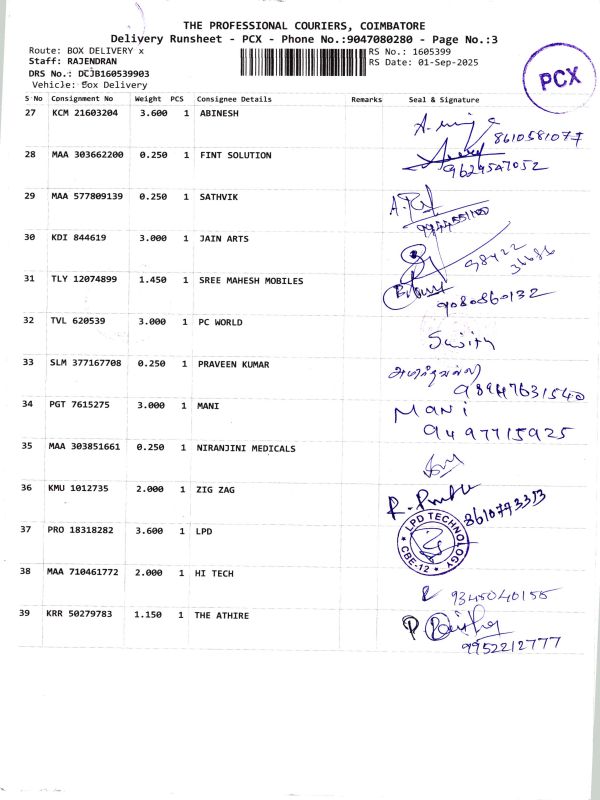 THE PROFESSIONAL COURIERS, COIMBATORE
Delivery Runsheet - PCX - Phone No.:9047080280 - Page No.:3
Route: BOX DELIVERY x RS No.: 1605399
Staff: RAJENDRAN RS Date: 01-Sep-2025
DRS No.: DCJB160539903
Vehicle: Box Delivery
PCX
S No Consignment No Weight PCS Consignee Details Remarks Seal & Signature
27 KCM 21603204 3.600 1 ABINESH
8610581077
28 MAA 303662200 0.250 1 FINT SOLUTION
9629547052
29 MAA 577809139 0.250 1 SATHVIK
30 KDI 844619 3.000 1 JAIN ARTS
31 TLY 12074899 1.450 1 SREE MAHESH MOBILES
9080860132
32 TVL 620539 3.000 1 PC WORLD
33 SLM 377167708 0.250 1 PRAVEEN KUMAR
34 PGT 7615275 3.000 1 MANI MANI
9497715925
35 MAA 303851661 0.250 1 NIRANJINI MEDICALS
36 KMU 1012735 2.000 1 ZIG ZAG
37 PRO 18318282 3.600 1 LPD LPD TECHNOLOGY CBE-12
38 MAA 710461772 2.000 1 HI TECH
9345040155
39 KRR 50279783 1.150 1 THE ATHIRE
9952212777